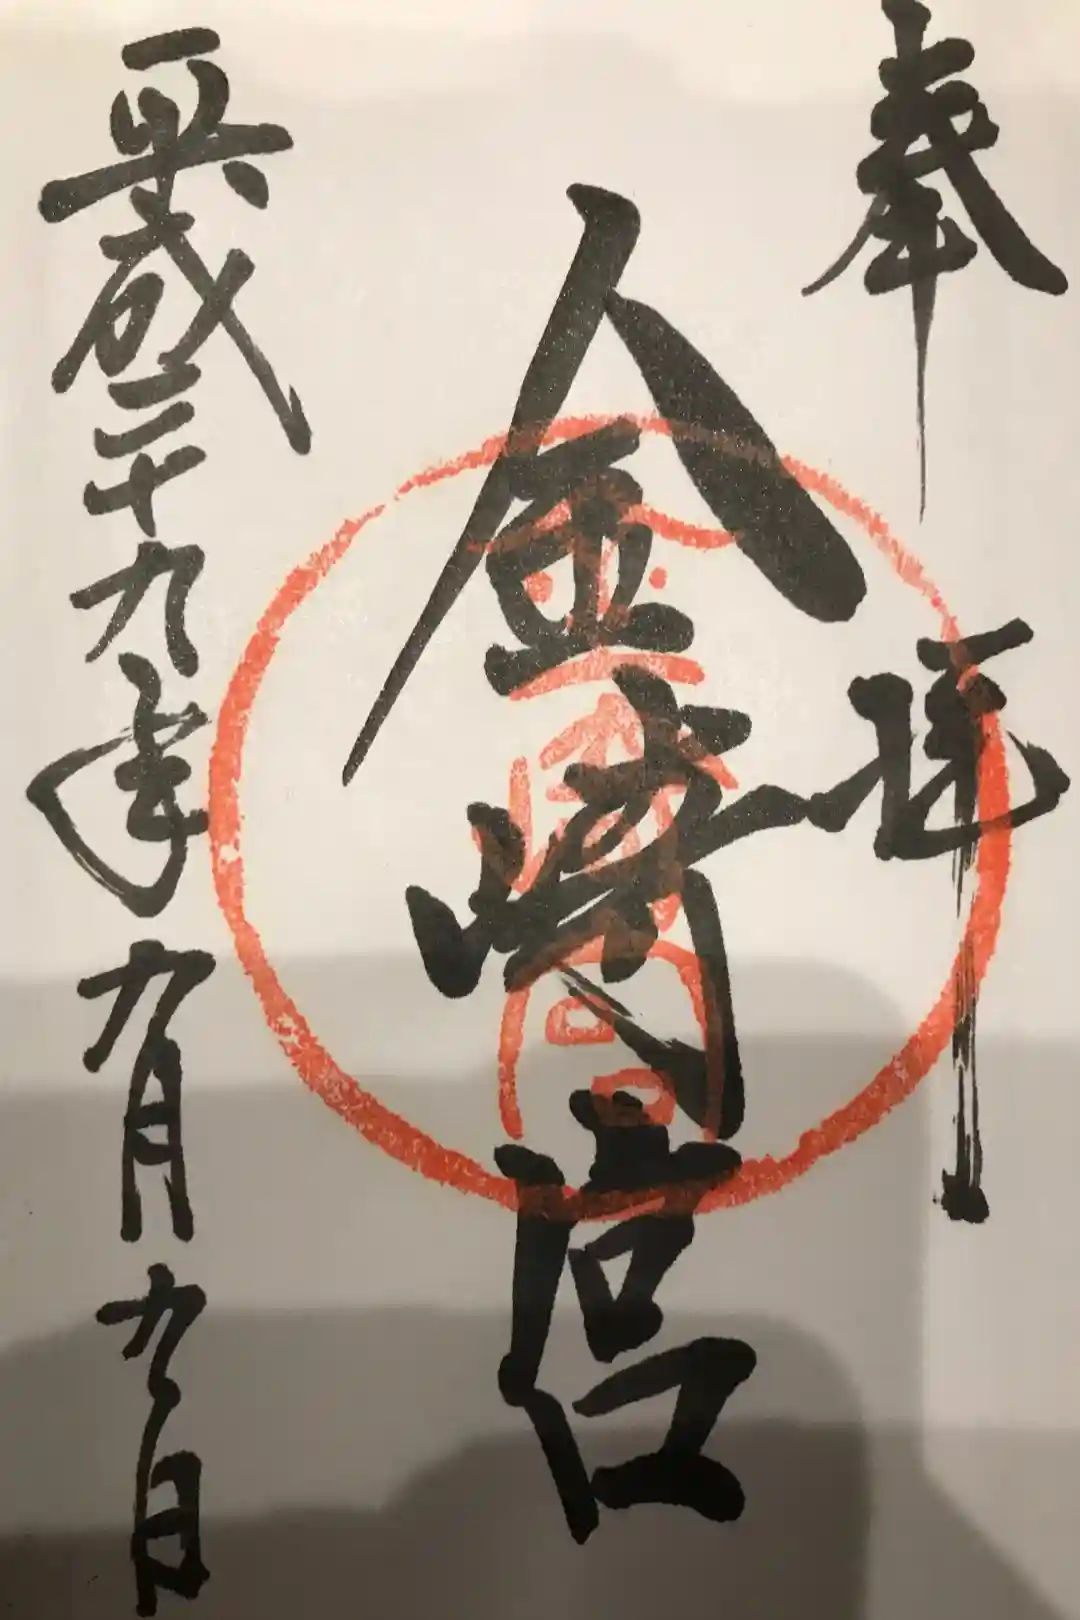 奉拝
金崎宮
平成二十九年九月九日